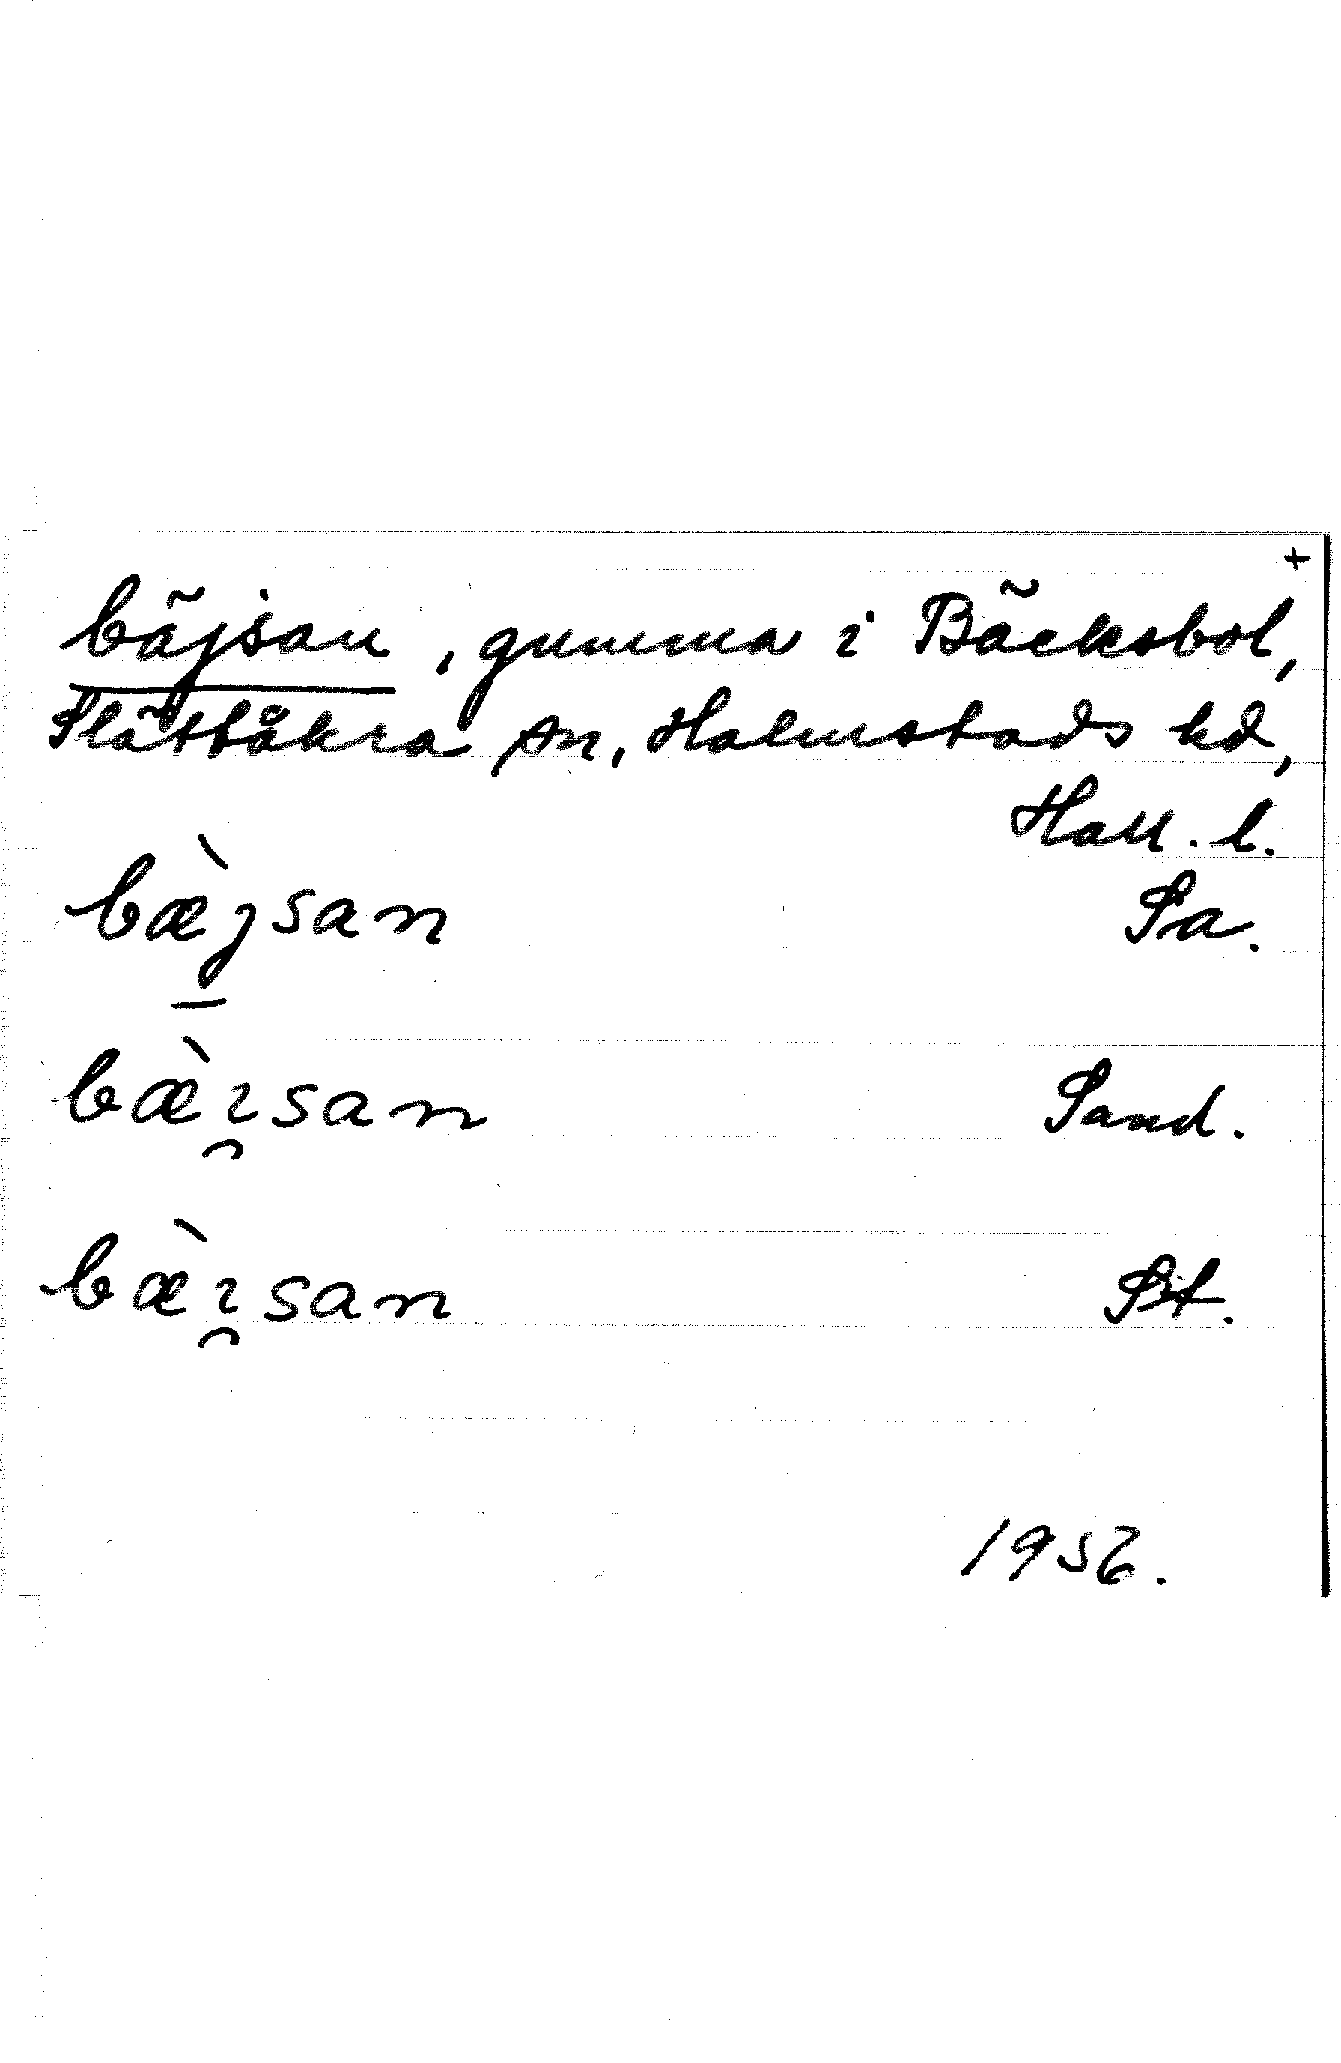 +
bäjsan, gumma i Bäcksbol,
Slättåkra sn, Halmstads hd,
Hall. l.
bæ̀jsan Sa.
bæ̀ı̯san Sand.
bæ̀ı̯san
1956.